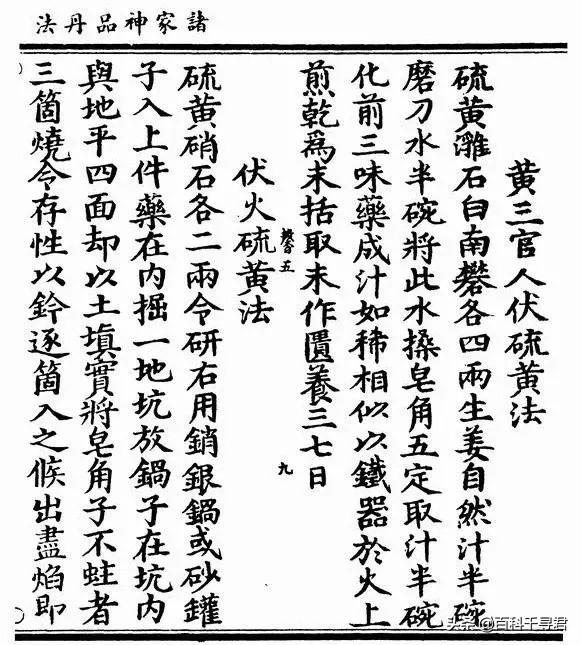 諸家神品丹法
黃三官人伏硫黃法
硫黃濰石白南礬各四兩生姜自然汁半碗
磨刀水半碗將此水搡皂角五定取汁半碗
化前三味藥成汁如稀相似以鐵器於火上
煎乾爲末括取末作匱養三七日
九
伏火硫黃法
硫黃硝石各二兩令研右用銷銀鍋或砂鑵
子入上件藥在內掘一地坑放鍋子在坑內
與地平四面却以土填實將皂角子不蛀者
三箇燒令存性以鈐逐箇入之候出盡焰即
头条@百科千寻君